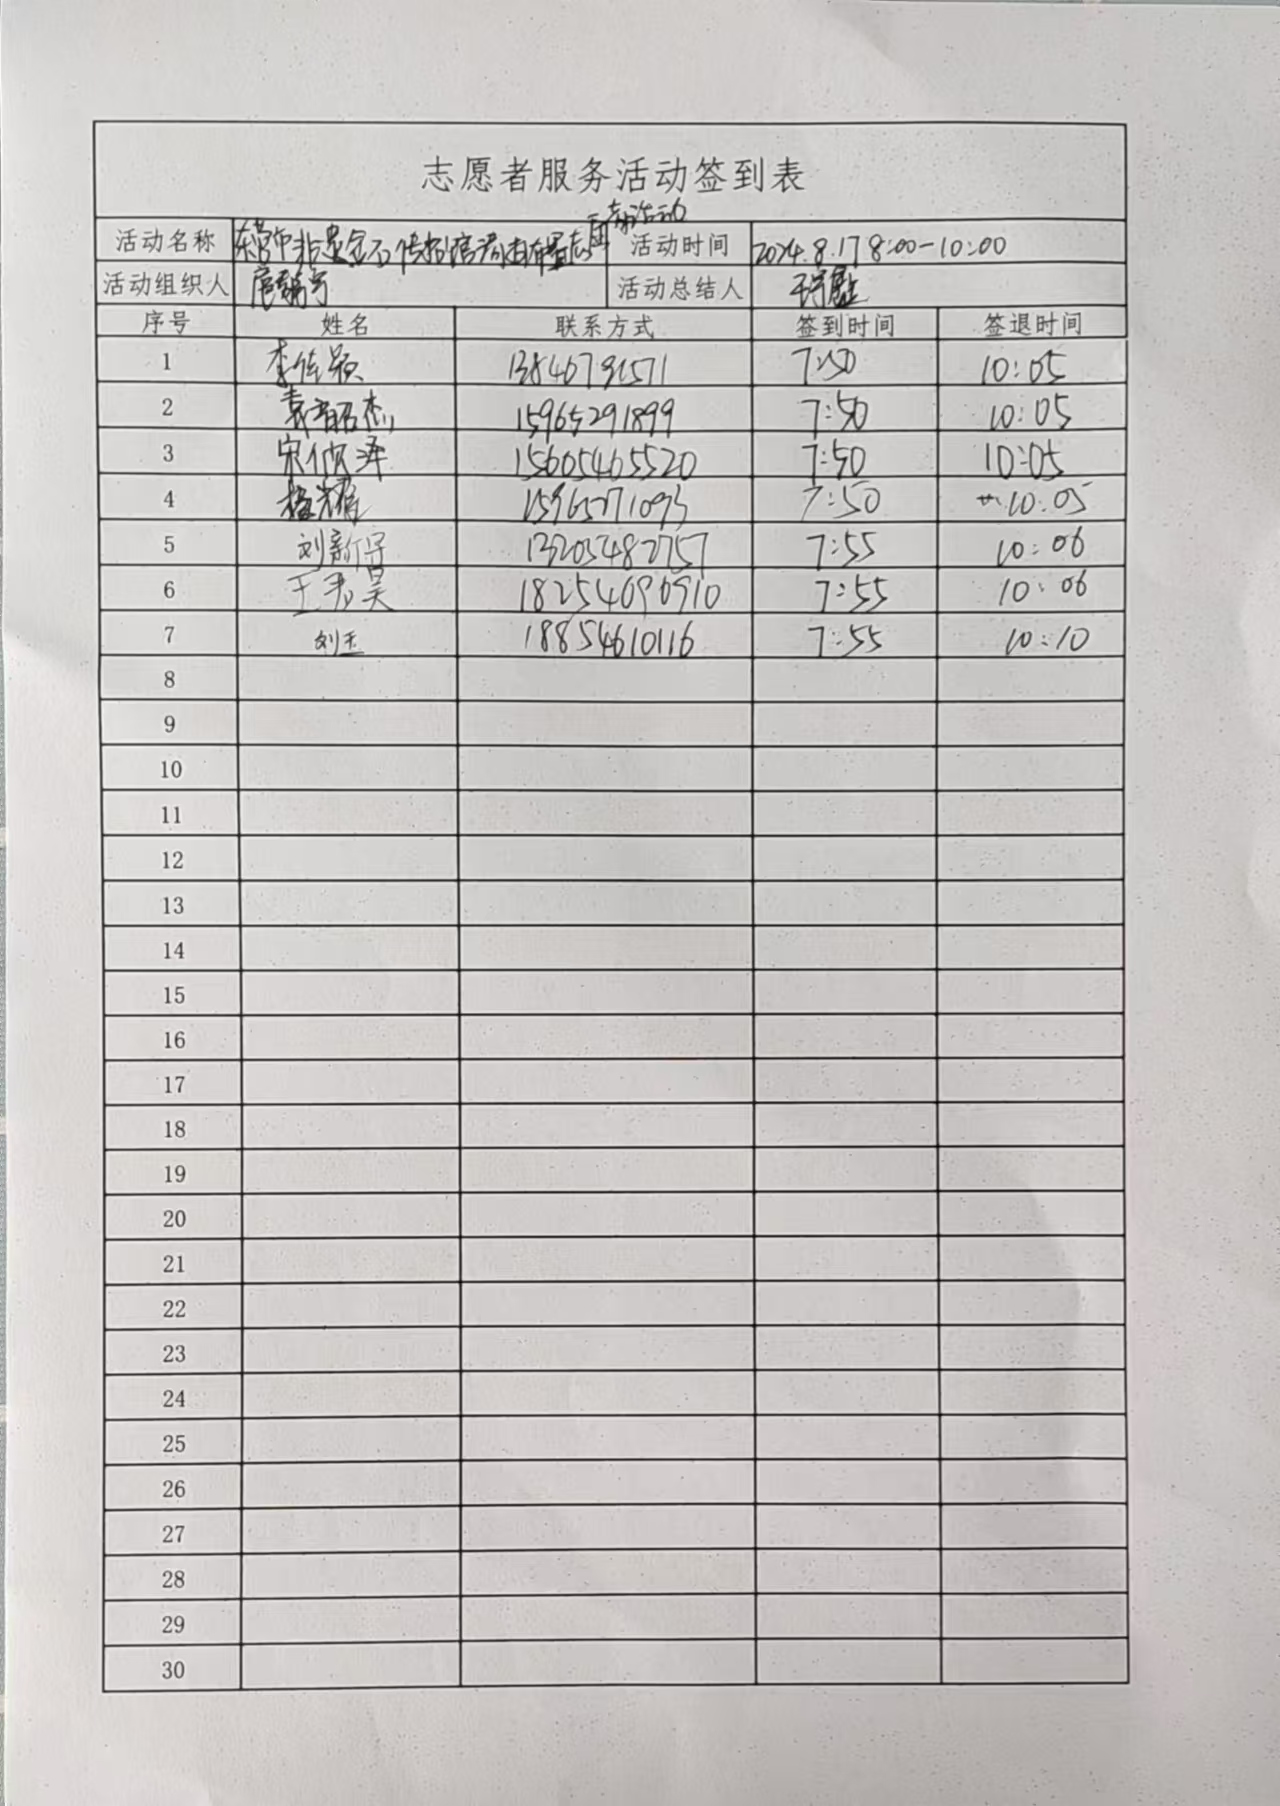 志愿者服务活动签到表
活动名称 东营市非 活动 活动时间 2024.8.17 8:00-10:00
活动组织人 活动总结人
序号 姓名 联系方式 签到时间 签退时间
1 李佳颖 7:50 10:05
2 袁韶杰 15965291899 7:50 10:05
3 宋欣泽 15605465520 7:50 10:05
4 15965271093 7:50 10:05
5 刘新 13205482757 7:55 10:06
6 王 昊 18254690910 7:55 10:06
7 刘玉 18854610116 7:55 10:10
8
9
10
11
12
13
14
15
16
17
18
19
20
21
22
23
24
25
26
27
28
29
30